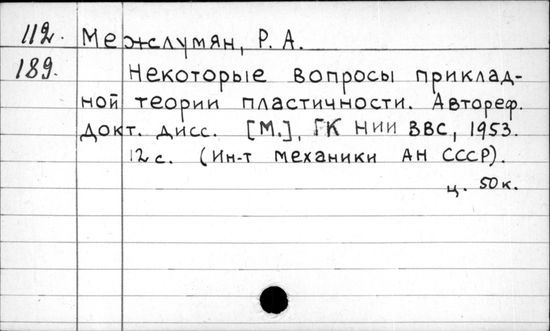 112. Межлумян, Р. А.
189. Некоторые вопросы приклад-
ной теории пластичности. Автореф.
докт. дисс. [М.], ГК НИИ ВВС, 1953.
12 с. (Ин-т механики АН СССР).
ц. 50 к.